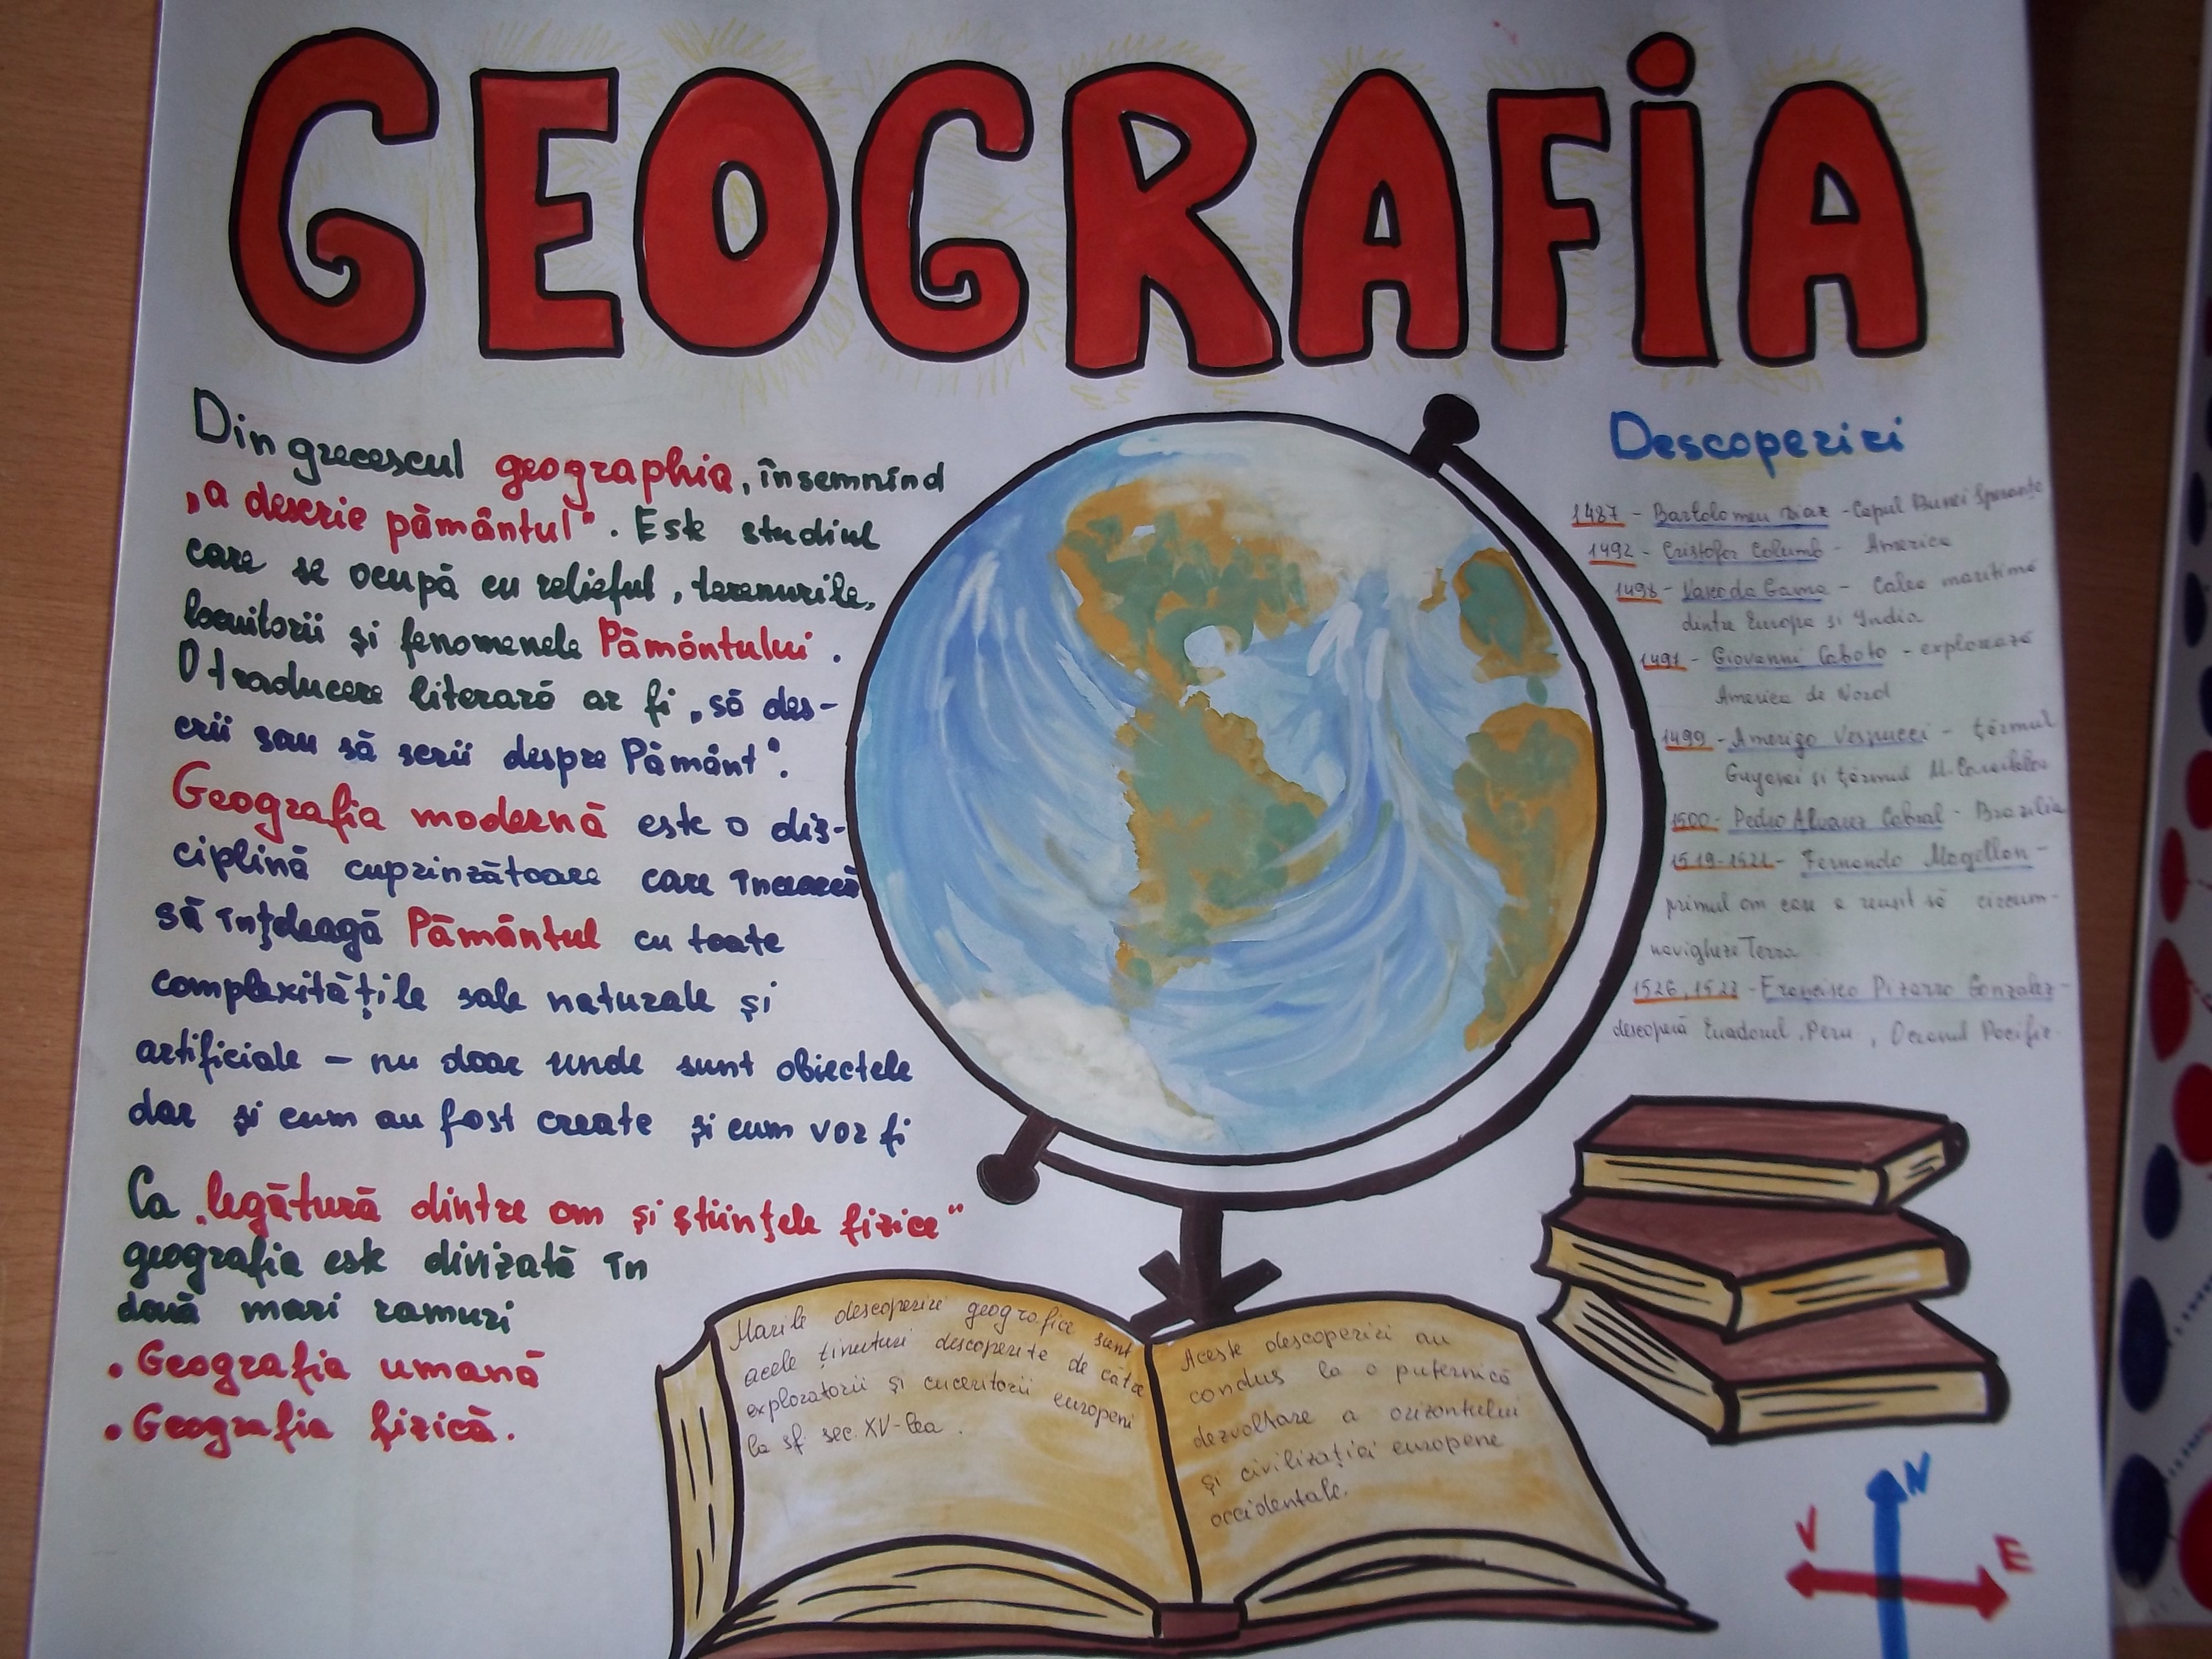 GEOGRAFiA
Din grecescul geographia, însemnînd
„a descrie pământul". Este studiul
care se ocupă cu relieful, terenurile,
locuitorii și fenomenele Pământului.
O traducere literară ar fi „să des-
crii sau să scrii despre Pământ".
Geografia modernă este o dis-
ciplină cuprinzătoare care încearcă
să înțeleagă Pământul cu toate
complexitățile sale naturale și
artificiale – nu doar unde sunt obiectele
dar și cum au fost create și cum vor fi
Ca „legătură dintre om și științele fizice"
geografia este divizată în
două mari ramuri
• Geografia umană
• Geografia fizică.
Descoperiri
1487 - Bartolomeu Diaz - Capul Bunei Speranțe
1492 - Cristofor Columb - America
1498 - Vasco da Gama - Calea maritimă
dintre Europa si India
1491 - Giovanni Caboto - explorează
America de Nord
1499 - Amerigo Vespucci - țărmul
Guyanei si țărmul M.
1500 - Pedro Alvarez Cabral - Brazilia
1519-1521 - Fernando Magellan -
primul om care a reușit să circum-
navigheze Terra
1526, 1522 - Francisco Pizarro Gonzalez -
descoperă Euadorul, Peru, Oceanul Pacific
Marile descoperiri geografice sunt
acele ținuturi descoperite de către
exploratorii și cuceritorii europeni
la sf. sec. XV-lea.
Aceste descoperiri au
condus la o puternică
dezvoltare a orizontului
și civilizației europene
occidentale.
N
V E